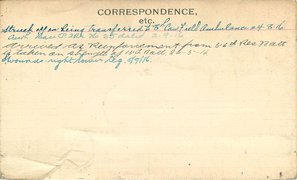 CORRESPONDENCE,
etc.
Struck off on being transferred to 5th Can Field Ambulance 24-8-16
2-9-16
arrived as Reinforcement from 56th Res Batt
& taken on strength of 10th Batt 26-5-16
Wounds right lower leg. 5/9/16.